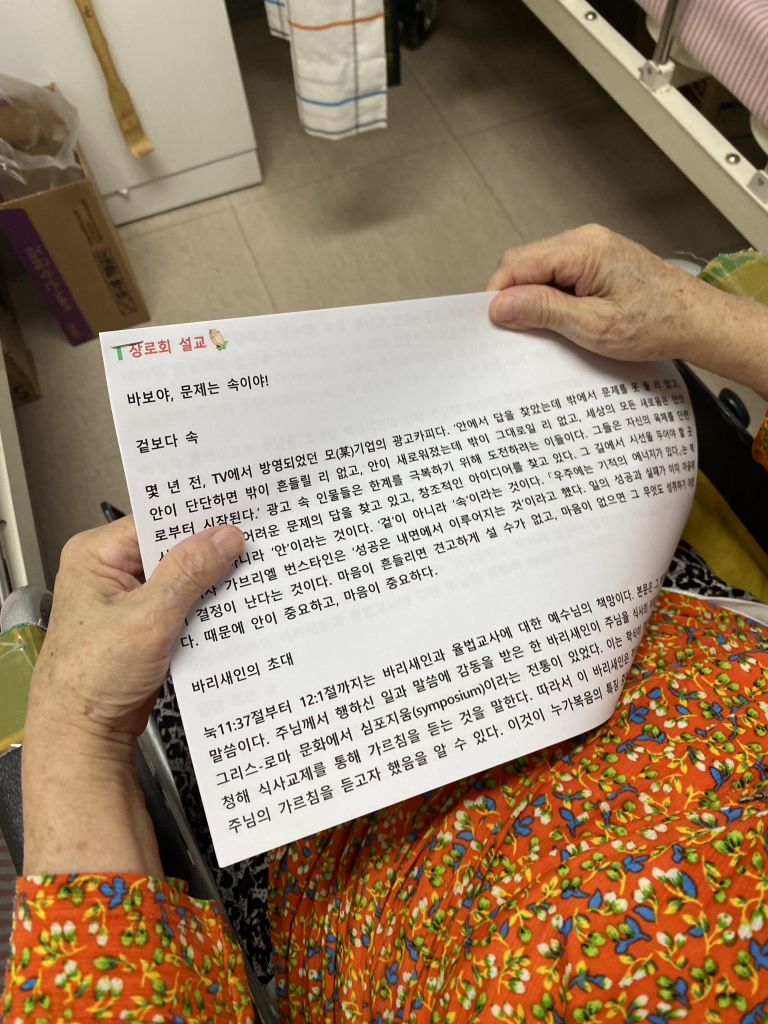 상로회 설교
바보야, 문제는 속이야!
겉보다 속
몇 년 전, TV에서 방영되었던 모(某)기업의 광고카피다. '안에서 답을 찾았는데 밖에서 문제를 못 풀 리 없고,
안이 단단하면 밖이 흔들릴 리 없고, 안이 새로워졌는데 밖이 그대로일 리 없고, 세상의 모든 새로움은
로부터 시작된다.' 광고 속 인물들은 한계를 극복하기 위해 도전하려는 이들이다. 그들은 자신의 욕체를 단련
어려운 문제의 답을 찾고 있고, 창조적인 아이디어를 찾고 있다. 그 길에서 시선을 두어야 할 곳
아니라 '안'이라는 것이다. '겉'이 아니라 '속'이라는 것이다. 「우주에는 기적의 에너지가 있다」는 책
가브리엘 번스타인은 '성공은 내면에서 이루어지는 것'이라고 했다. 일의 성공과 실패가 이미 마음에
결정이 난다는 것이다. 마음이 흔들리면 견고하게 설 수가 없고, 마음이 없으면 그 무엇도 성취하기
다. 때문에 안이 중요하고, 마음이 중요하다.
바리새인의 초대
눅11:37절부터 12:1절까지는 바리새인과 율법교사에 대한 예수님의 책망이다. 본문은
말씀이다. 주님께서 행하신 일과 말씀에 감동을 받은 한 바리새인이 주님을 식사의
그리스-로마 문화에서 심포지움(symposium)이라는 전통이 있었다. 이는
청해 식사교제를 통해 가르침을 듣는 것을 말한다. 따라서 이 바리새인은
주님의 가르침을 듣고자 했음을 알 수 있다. 이것이 누가복음의 특징